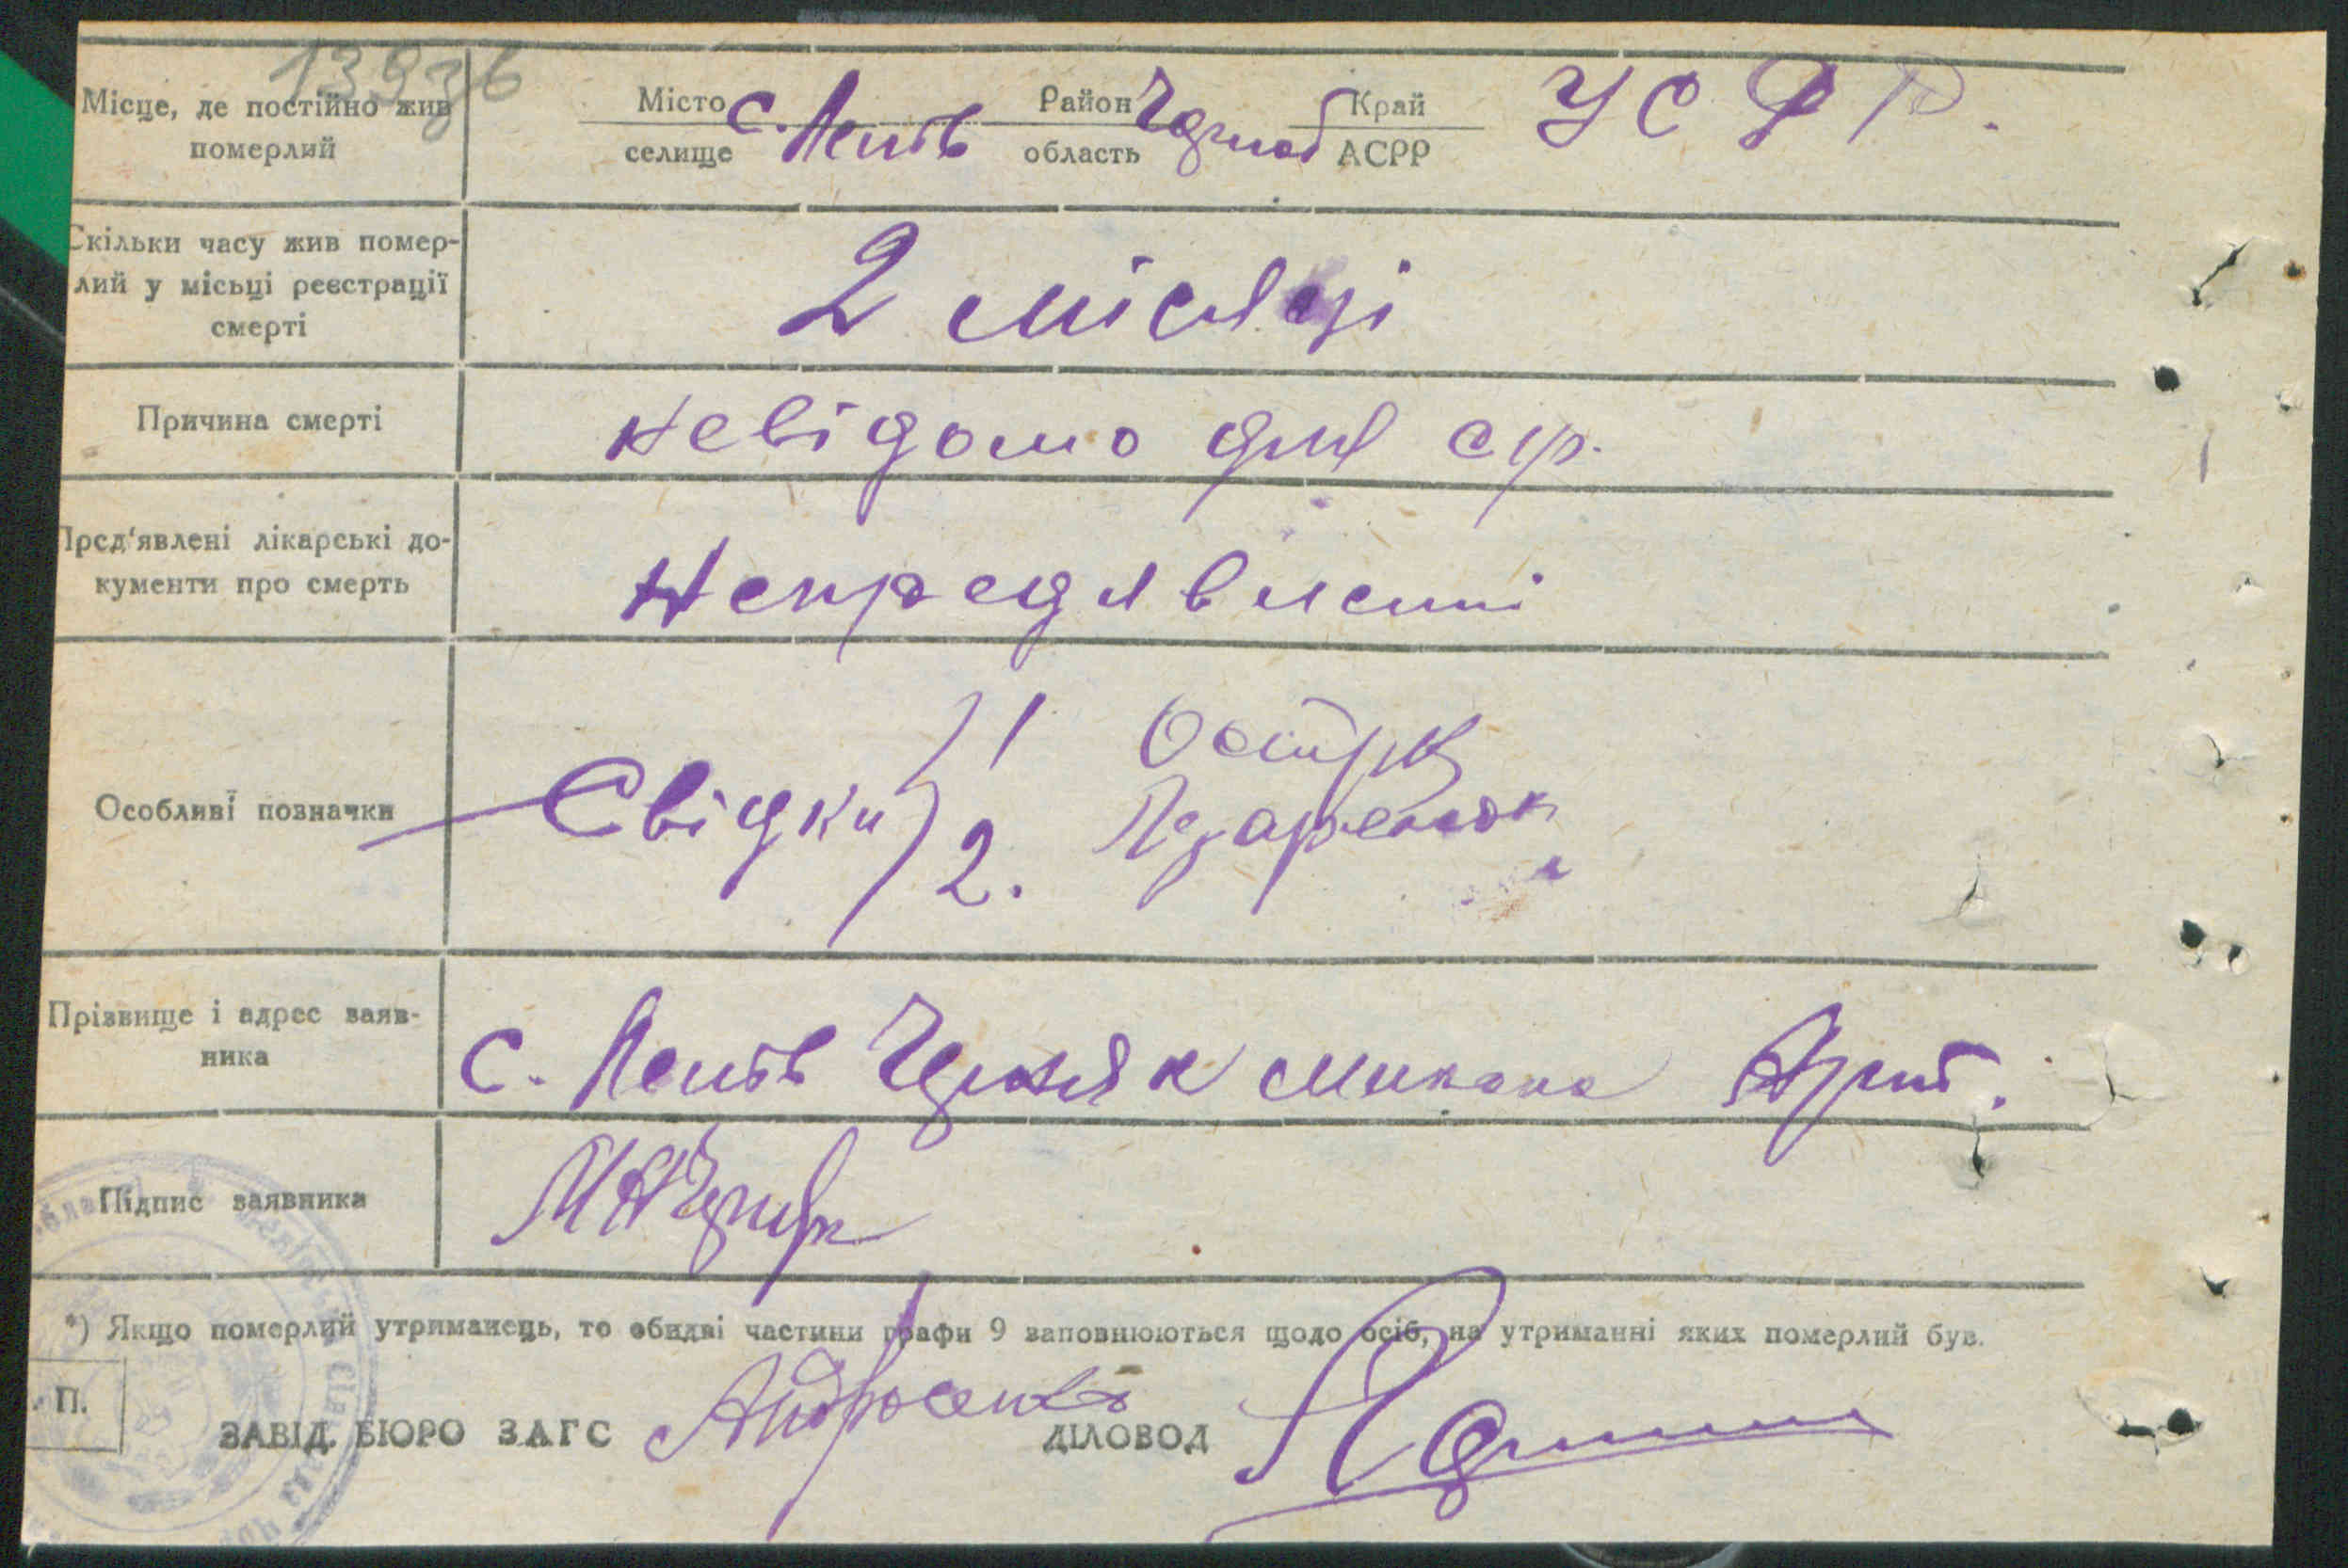 13936
Місце, де постійно жив
померлий
Місто
селище
с. Лепъ
Район
область
Чорноб
Край
АСРР
УСРР.
Скільки часу жив помер-
лий у місьці реєстрації
смерті
2 місяці
Причина смерті
невідомо для с/р.
Пред'явлені лікарські до-
кументи про смерть
Непредявлені
Особливі позначки
Свідки
1
2.
Прізвище і адрес заяв-
ника
с. Черняк Микана
Підпис заявника
*) Якщо померлий утриманець, то обидві частини графи 9 заповнюються щодо осіб, на утриманні яких померлий був.
П.
ЗАВІД. БЮРО ЗАГС
ДІЛОВОД